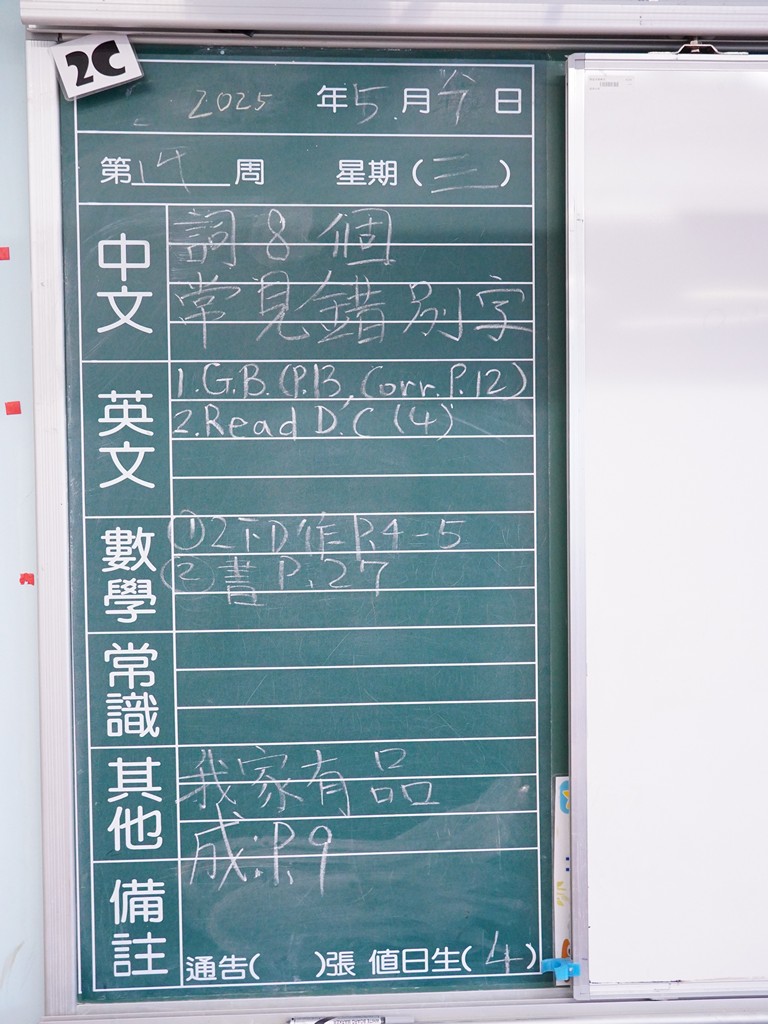 2C
2025 年 5 月 7 日
第 14 周 星期 ( 三 )
中文
詞 8 個
常見錯別字
英文
1. G.B. (P.13, Corr. P.12)
2. Read D.C (4)
數學
① 2下D作 P.4-5
② 書 P.27
常識
其他
我家有品
成.P.9
備註
通告( )張 值日生( 4 )